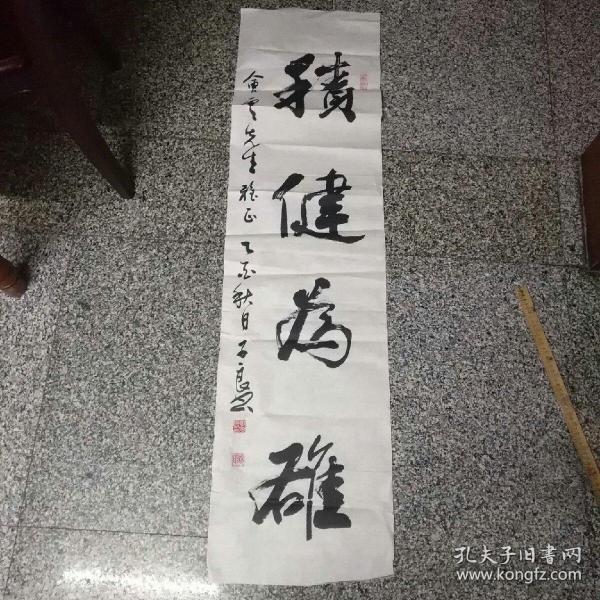 積健為雄
雲先生雅正 乙酉秋日 子良
孔夫子旧書网
www.kongfz.com